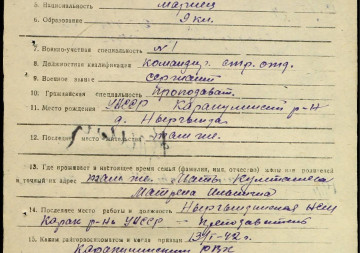 5. Национальность мариец
6. Образование 9 кл.
7. Военно-учетная специальность №1
8. Должностная квалификация командир стр. отд.
9. Военное звание сержант
10. Гражданская специальность преподават.
11. Место рождения УАССР Каракулинский р-н
д. Ныргында
12. Последнее место там же.
13. Где проживает в настоящее время семья (фамилия, имя, отчество) жены или родителей
и точный их адрес там же. Мать
Матрена
14. Последнее место работы и должность Ныргындинская НСШ
Карак. р-на УАССР преподаватель
15. Каким райвоенкоматом и когда призван 42 г.
Каракулинским РВК